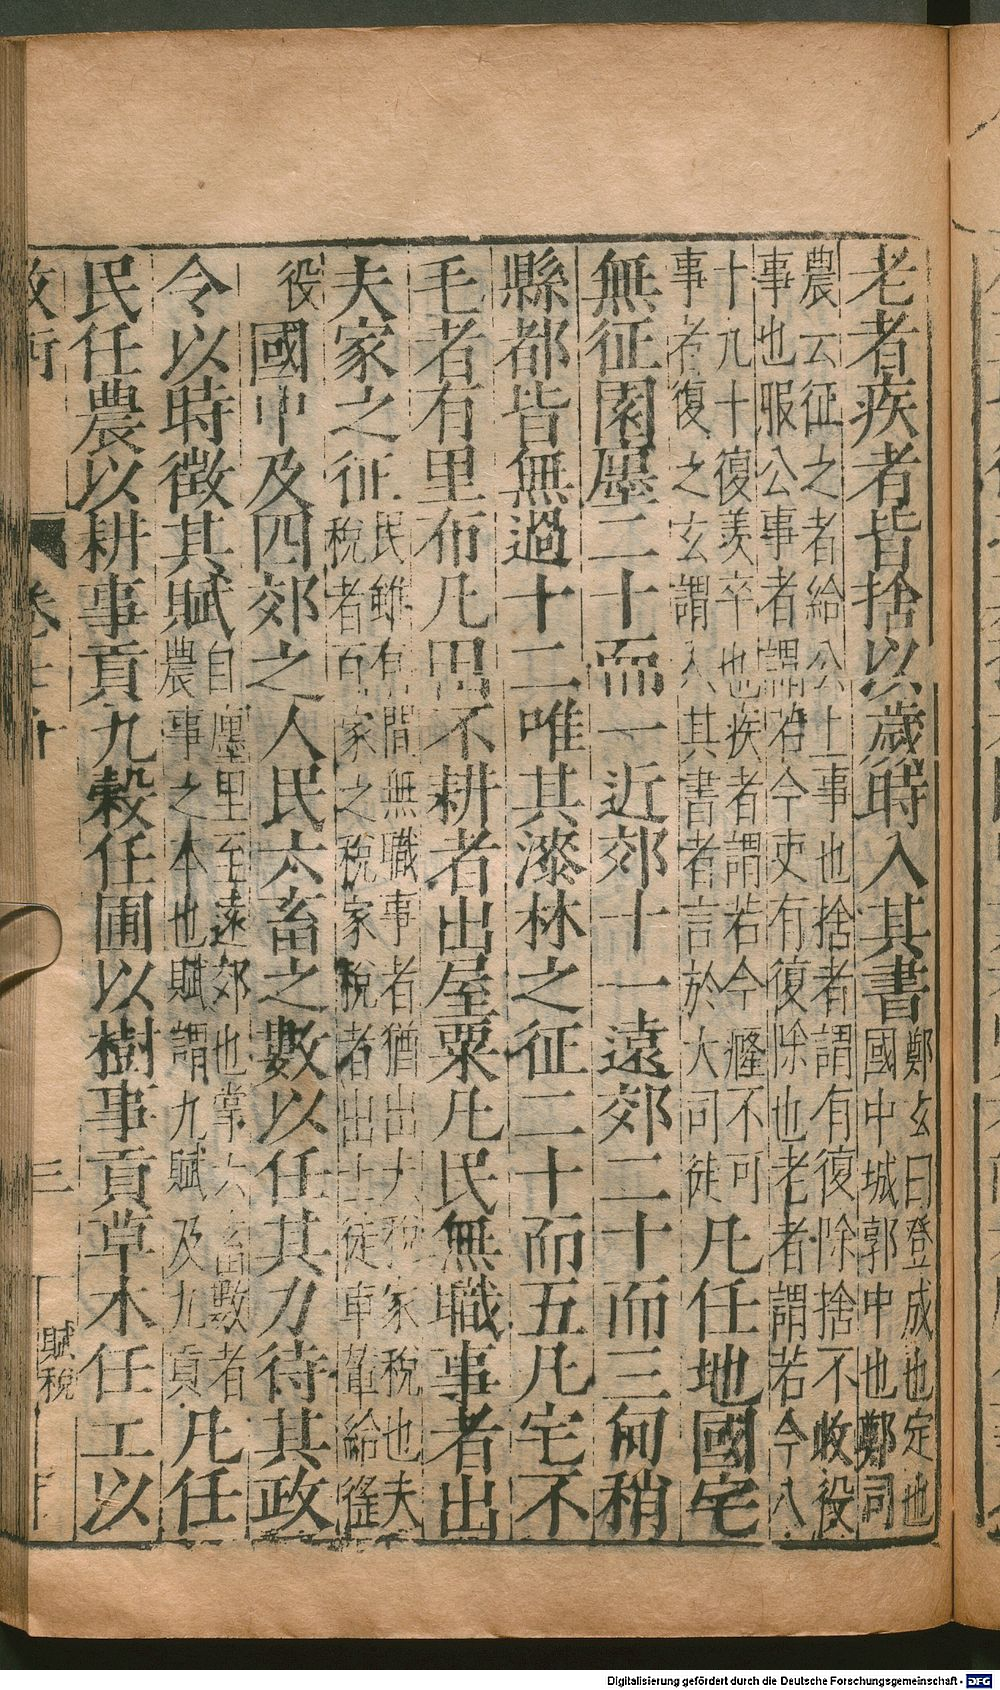 老者疾者皆捨以歲時入其書
鄭玄曰登成也定也
國中城郭中也鄭司
農云征之者給公上事也捨者謂有復除捨不收役
事也服公事者謂若今吏有復除也老者謂若今八
十九十復羨卒也疾者謂若今癃不可
事者復之玄謂入其書者言於大司徒
凡任地國宅
無征園廛二十而一近郊十一遠郊二十而三甸稍
縣都皆無過十二唯其漆林之征二十而五凡宅不
毛者有里布凡田不耕者出屋粟凡民無職事者出
夫家之征
民雖有間無職事者猶出夫稅家稅也夫
稅者百家之稅家稅者出士徒車輦給徭
役
國中及四郊之人民六畜之數以任其力待其政
令以時徵其賦
自廛里至遠郊也掌六畜數者
農事之本也賦謂九賦及九貢
凡任
民任農以耕事貢九穀任圃以樹事貢草木任工以
三
賦稅
Digitalisierung gefördert durch die Deutsche Forschungsgemeinschaft - DFG